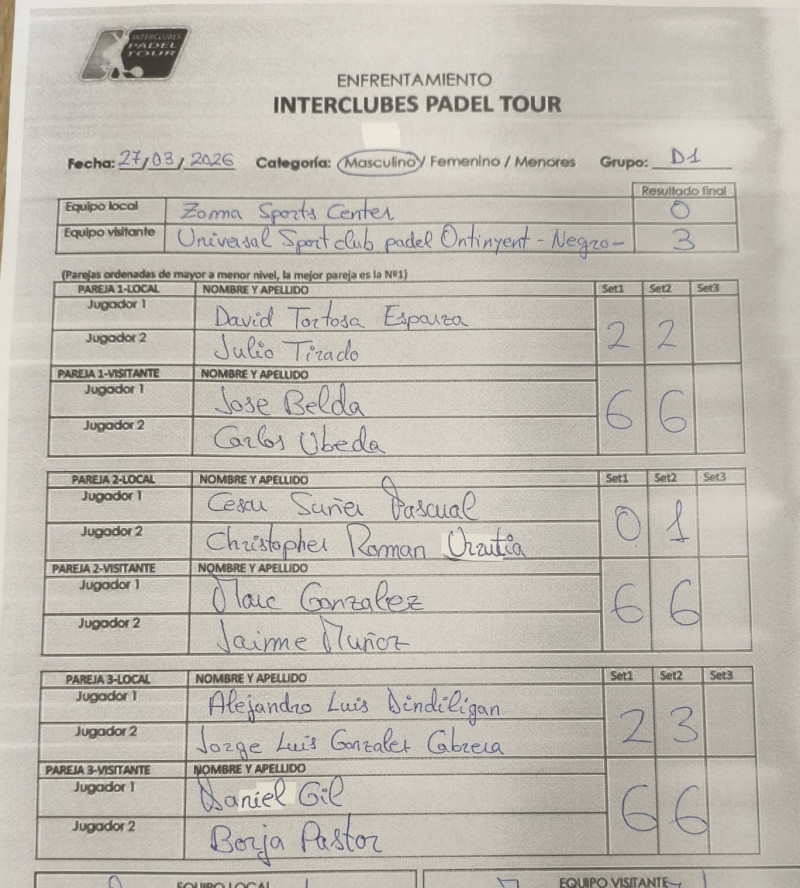 INTERCLUBES
PADEL
TOUR
ENFRENTAMIENTO
INTERCLUBES PADEL TOUR
Fecha: 27/03/2026 Categoría: Masculino / Femenino / Menores Grupo: D1
Resultado final
Equipo local Zoma Sports Center 0
Equipo visitante Universal Sport club padel Ontinyent - Negro - 3
(Parejas ordenadas de mayor a menor nivel, la mejor pareja es la Nº1)
PAREJA 1-LOCAL NOMBRE Y APELLIDO Set1 Set2 Set3
Jugador 1 David Tortosa Esparza
2 2
Jugador 2 Julio Tirado
PAREJA 1-VISITANTE NOMBRE Y APELLIDO
Jugador 1 Jose Belda
6 6
Jugador 2 Carlos Ubeda
PAREJA 2-LOCAL NOMBRE Y APELLIDO Set1 Set2 Set3
Jugador 1 Cesar Suñer Pascual
0 1
Jugador 2 Christopher Roman Urrutia
PAREJA 2-VISITANTE NOMBRE Y APELLIDO
Jugador 1 Marc Gonzalez
6 6
Jugador 2 Jaime Muñoz
PAREJA 3-LOCAL NOMBRE Y APELLIDO Set1 Set2 Set3
Jugador 1 Alejandro Luis Dindiligan
2 3
Jugador 2 Jorge Luis Gonzalez Cabrera
PAREJA 3-VISITANTE NOMBRE Y APELLIDO
Jugador 1 Daniel Gil
6 6
Jugador 2 Borja Pastor
EQUIPO LOCAL EQUIPO VISITANTE